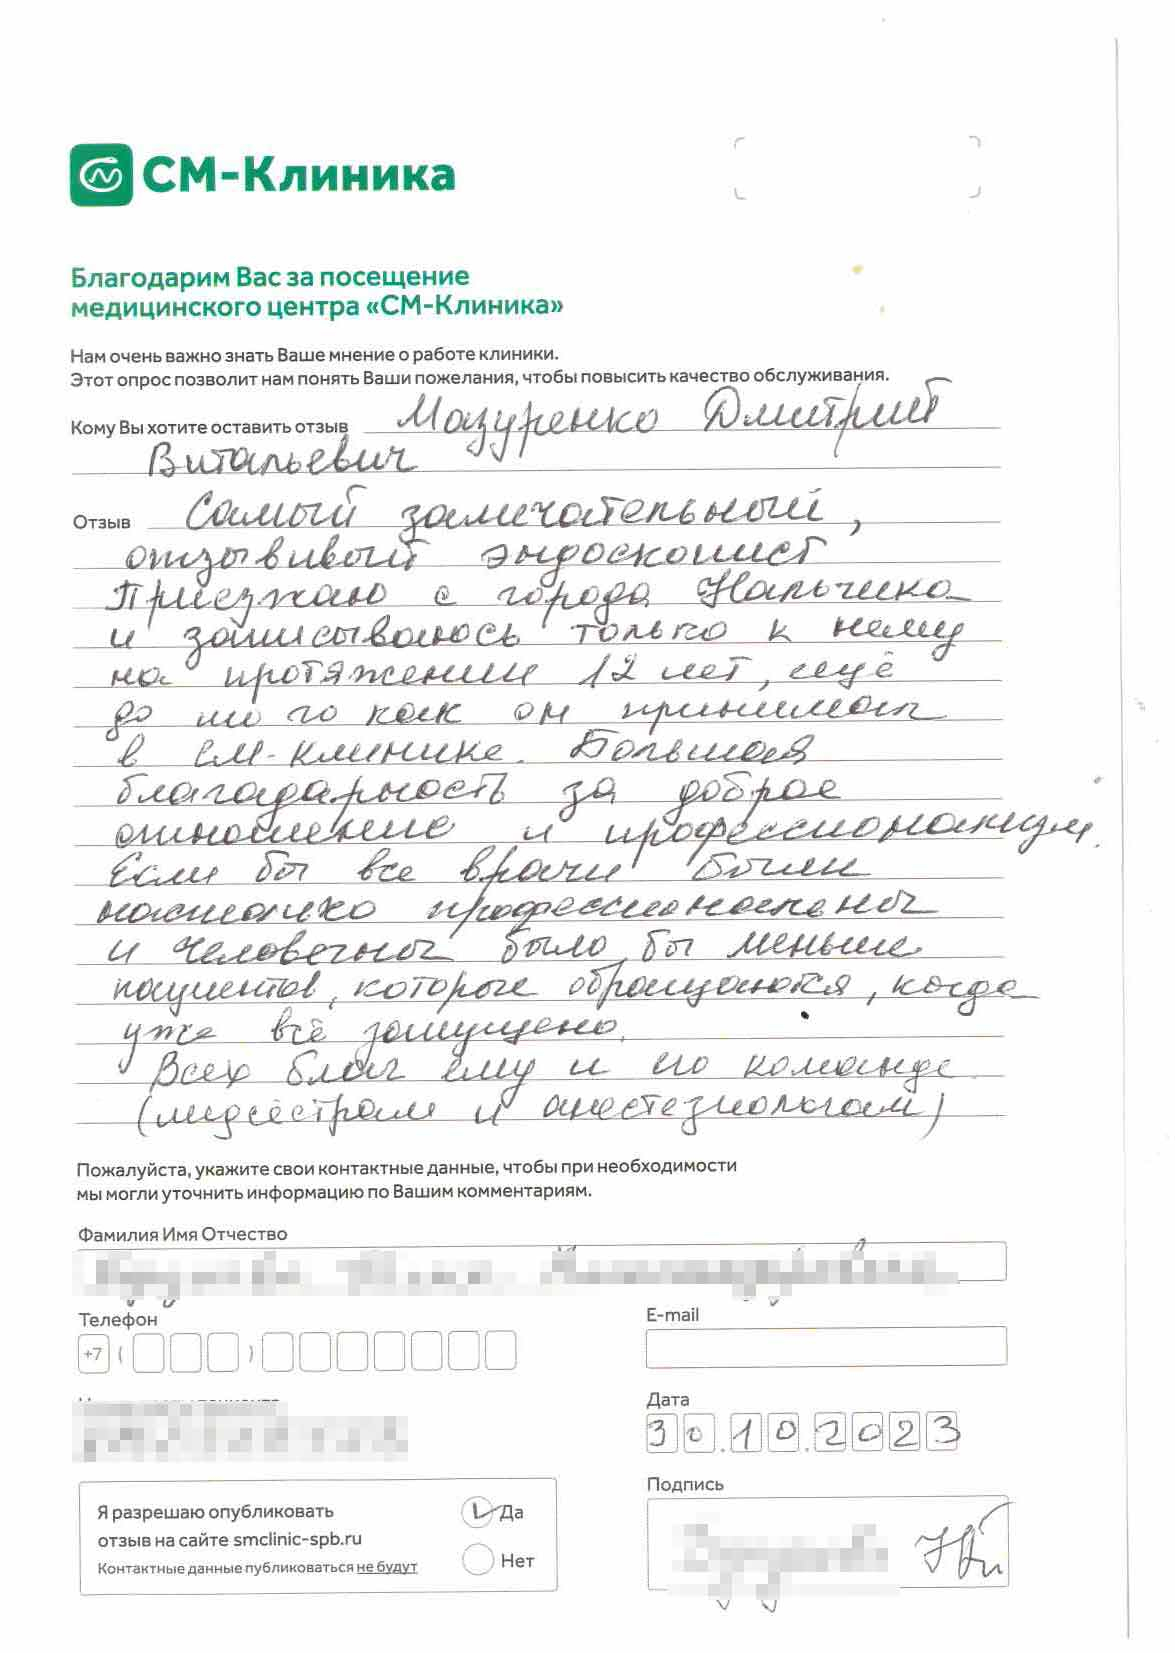 СМ-Клиника
Благодарим Вас за посещение
медицинского центра «СМ-Клиника»
Нам очень важно знать Ваше мнение о работе клиники.
Этот опрос позволит нам понять Ваши пожелания, чтобы повысить качество обслуживания.
Кому Вы хотите оставить отзыв Мазуренко Дмитрий
Витальевич
Отзыв Самый замечательный,
отзывивый эндоскопист
Приезжаю с города Нальчика
и записываюсь только к нему
на протяжении 12 лет, ещё
до того как он принимал
в СМ-клинике. Большая
благодарность за доброе
отношение и профессионализм.
Если бы все врачи были
настолько профессиональны
и человечны было бы меньше
пациентов, которые обращаются, когда
уже всё запущено.
Всех благ ему и его команде
(медсёстрам и анестезиологам)
Пожалуйста, укажите свои контактные данные, чтобы при необходимости
мы могли уточнить информацию по Вашим комментариям.
Фамилия Имя Отчество
Телефон
E-mail
+7 ( )
Дата
30.10.2023
Подпись
Я разрешаю опубликовать
отзыв на сайте smclinic-spb.ru
Контактные данные публиковаться не будут
Да
Нет